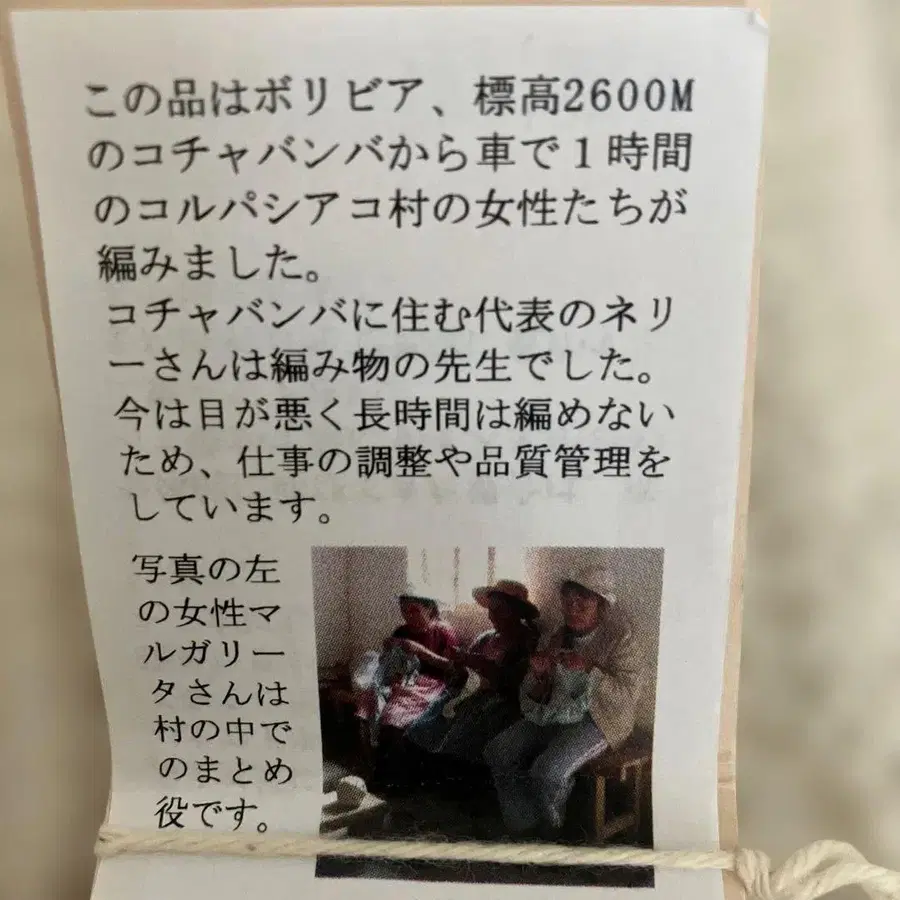 この品はボリビア、標高2600M
のコチャバンバから車で１時間
のコルパシアコ村の女性たちが
編みました。
コチャバンバに住む代表のネリ
ーさんは編み物の先生でした。
今は目が悪く長時間は編めない
ため、仕事の調整や品質管理を
しています。
写真の左
の女性マ
ルガリー
タさんは
村の中で
のまとめ
役です。